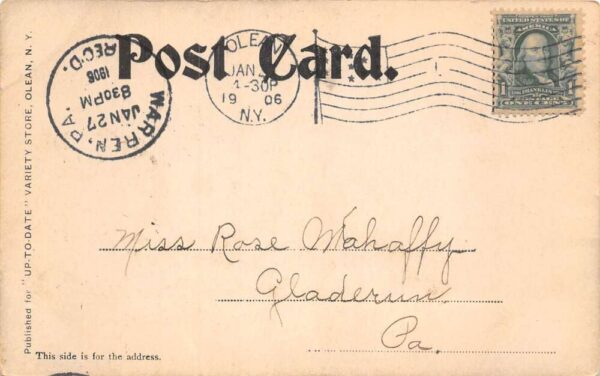 Post Card.
WARREN, PA.
JAN 27
8 30 PM
1906
REC'D.
OLEAN
JAN
1-30P
19 06
N.Y.
UNITED STATES OF
AMERICA
1 1
ONE CENT
Published for "UP-TO-DATE" VARIETY STORE, OLEAN, N. Y.
Miss Rose Mahaffy
Gladerun
Pa.
This side is for the address.